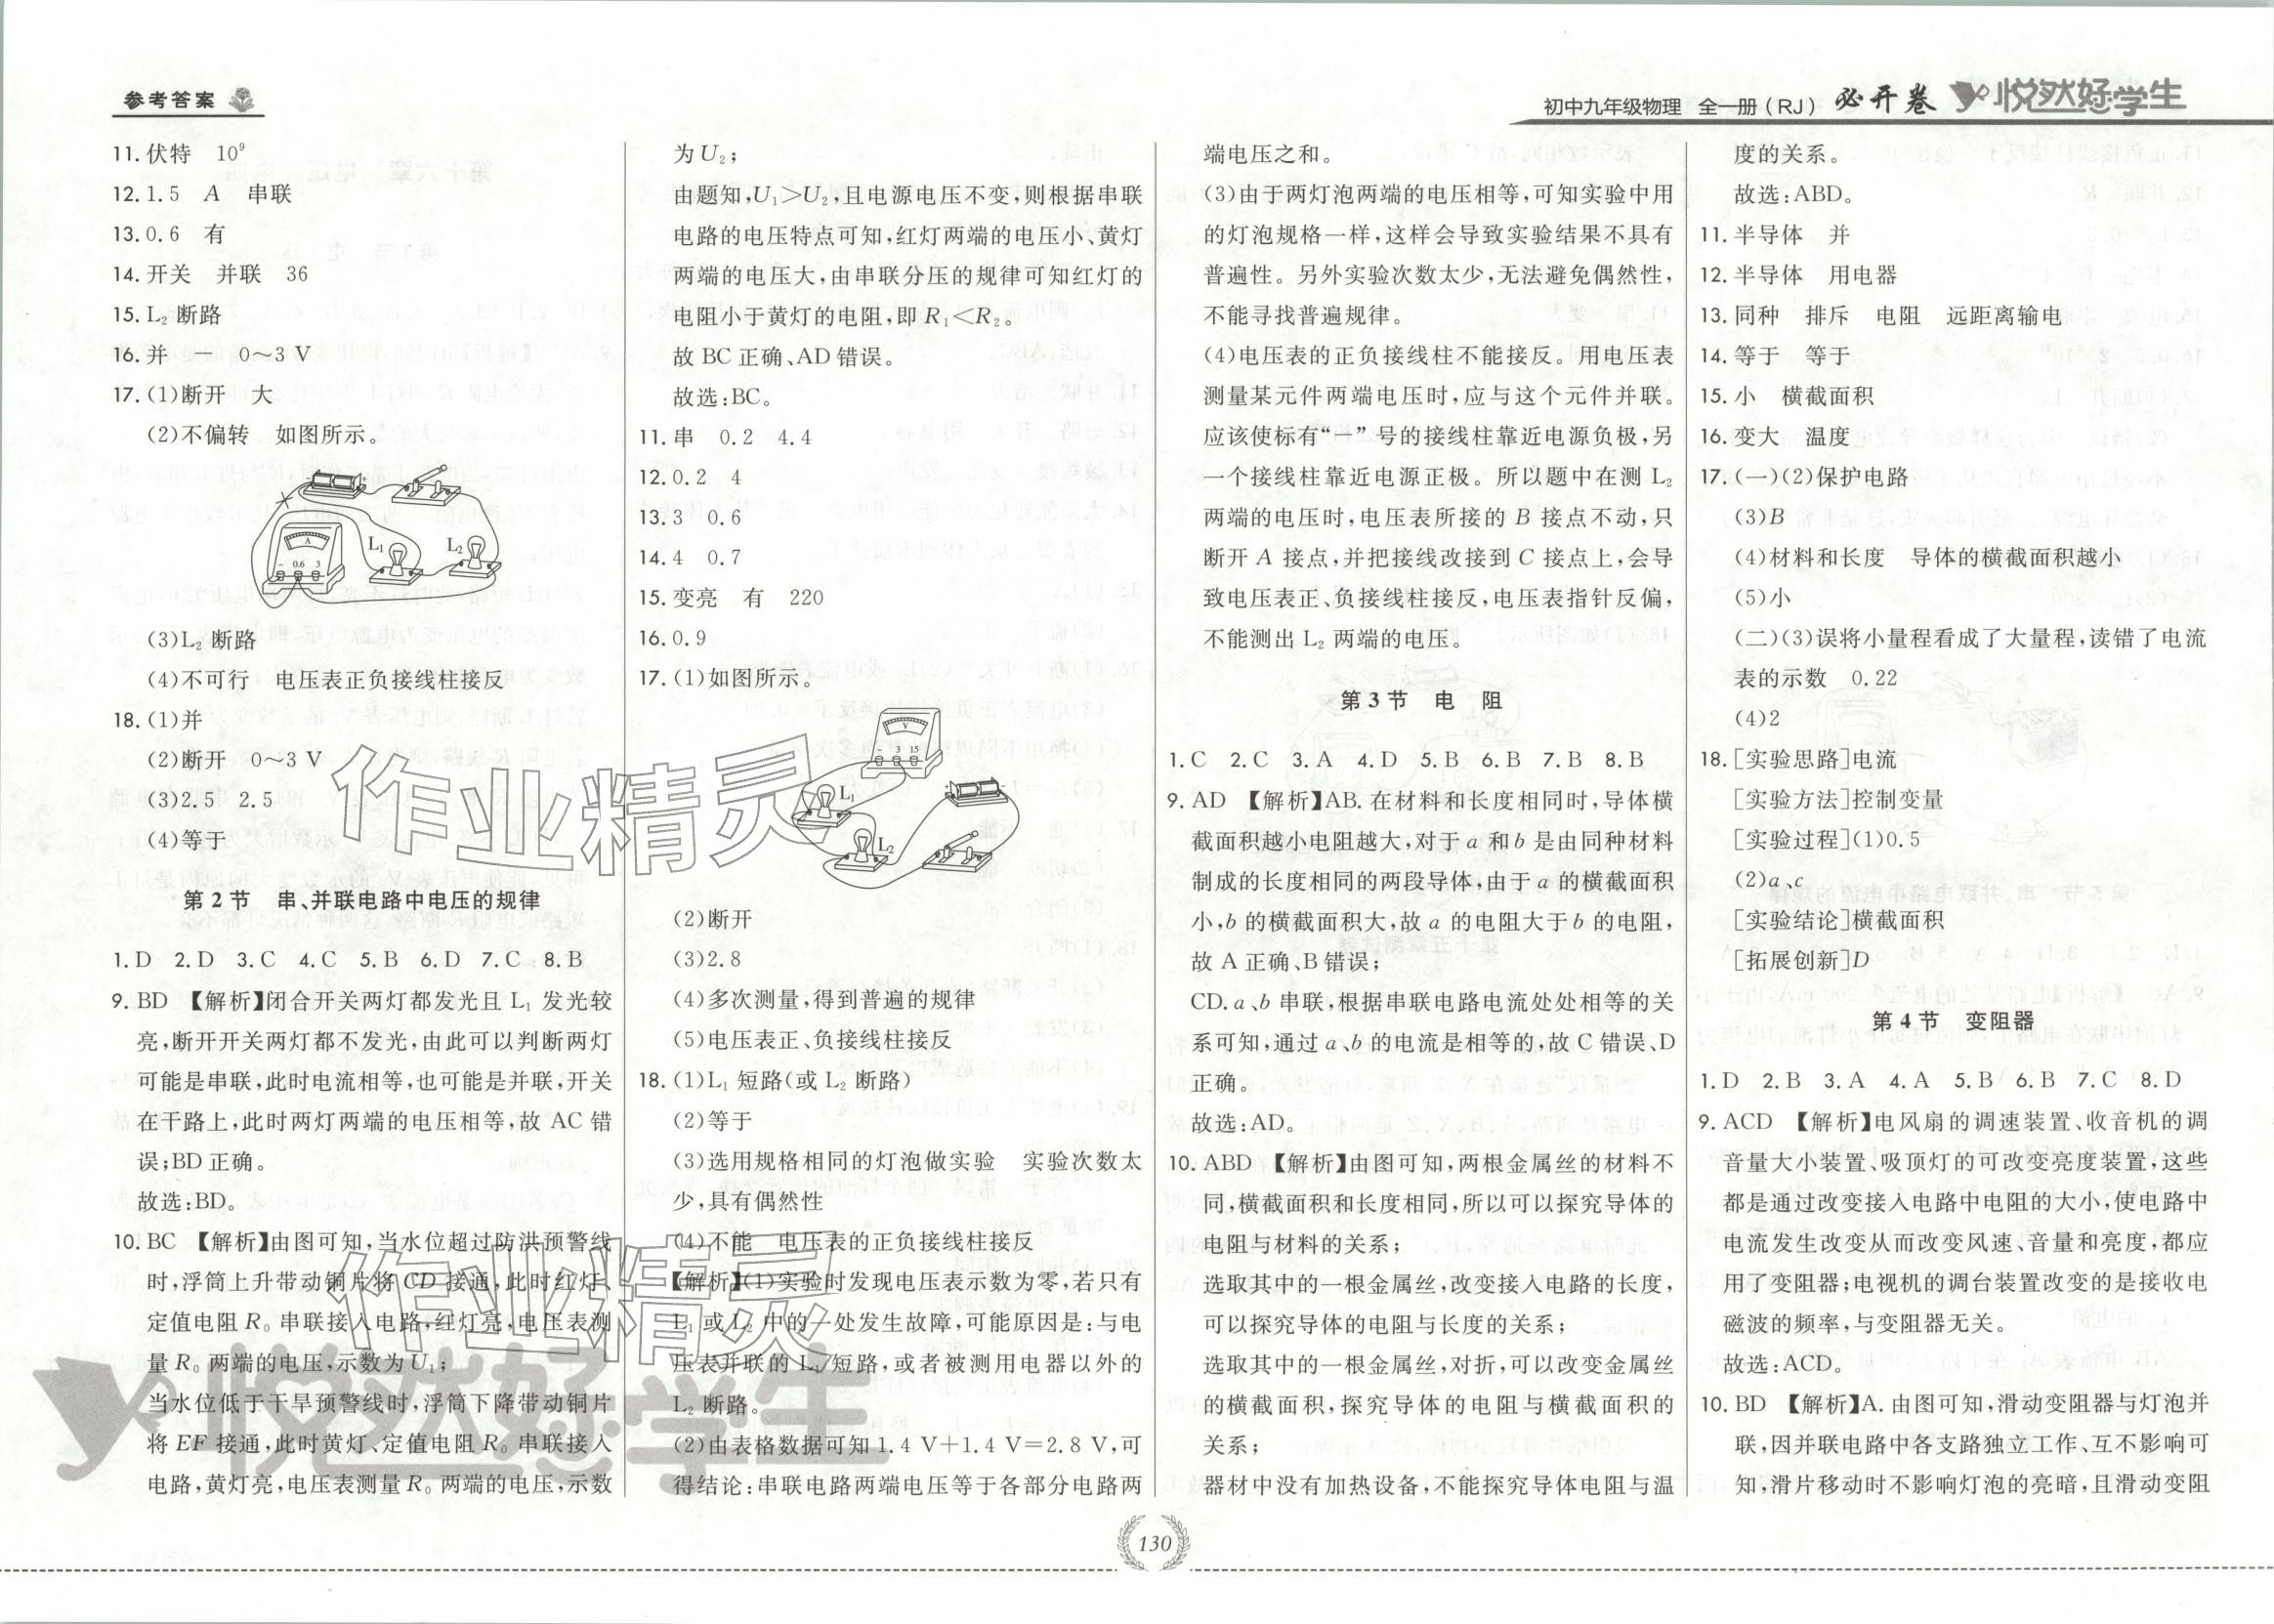 参考答案
初中九年级物理 全一册(RJ) 必开卷 悦然好学生
11.伏特 10⁹
12.1.5 A 串联
13.0.6 有
14.开关 并联 36
15.L₂断路
16.并 一 0～3 V
17.(1)断开 大
(2)不偏转 如图所示。
A
- 0.6 3
L₁
L₂
(3)L₂断路
(4)不可行 电压表正负接线柱接反
18.(1)并
(2)断开 0～3 V
(3)2.5 2.5
(4)等于
第2节 串、并联电路中电压的规律
1.D 2.D 3.C 4.C 5.B 6.D 7.C 8.B
9.BD 【解析】闭合开关两灯都发光且 L₁ 发光较
亮,断开开关两灯都不发光,由此可以判断两灯
可能是串联,此时电流相等,也可能是并联,开关
在干路上,此时两灯两端的电压相等,故 AC 错
误;BD正确。
故选:BD。
10.BC 【解析】由图可知,当水位超过防洪预警线
时,浮筒上升带动铜片将 CD 接通,此时红灯、
定值电阻 R₀ 串联接入电路,红灯亮,电压表测
量 R₀ 两端的电压,示数为 U₁;
当水位低于干旱预警线时,浮筒下降带动铜片
将 EF 接通,此时黄灯、定值电阻 R₀ 串联接入
电路,黄灯亮,电压表测量 R₀ 两端的电压,示数
为U₂;
由题知,U₁>U₂,且电源电压不变,则根据串联
电路的电压特点可知,红灯两端的电压小、黄灯
两端的电压大,由串联分压的规律可知红灯的
电阻小于黄灯的电阻,即 R₁<R₂。
故 BC 正确、AD 错误。
故选:BC。
11.串 0.2 4.4
12.0.2 4
13.3 0.6
14.4 0.7
15.变亮 有 220
16.0.9
17.(1)如图所示。
V
- 3 15
L₁
L₂
(2)断开
(3)2.8
(4)多次测量,得到普遍的规律
(5)电压表正、负接线柱接反
18.(1)L₁ 短路(或 L₂ 断路)
(2)等于
(3)选用规格相同的灯泡做实验 实验次数太
少,具有偶然性
(4)不能 电压表的正负接线柱接反
【解析】(1)实验时发现电压表示数为零,若只有
L₁ 或 L₂ 中的一处发生故障,可能原因是:与电
压表并联的 L₁ 短路,或者被测用电器以外的
L₂ 断路。
(2)由表格数据可知 1.4 V+1.4 V=2.8 V,可
得结论:串联电路两端电压等于各部分电路两
端电压之和。
(3)由于两灯泡两端的电压相等,可知实验中用
的灯泡规格一样,这样会导致实验结果不具有
普遍性。另外实验次数太少,无法避免偶然性,
不能寻找普遍规律。
(4)电压表的正负接线柱不能接反。用电压表
测量某元件两端电压时,应与这个元件并联。
应该使标有“－”号的接线柱靠近电源负极,另
一个接线柱靠近电源正极。所以题中在测 L₂
两端的电压时,电压表所接的 B 接点不动,只
断开 A 接点,并把接线改接到 C 接点上,会导
致电压表正、负接线柱接反,电压表指针反偏,
不能测出 L₂ 两端的电压。
第3节 电 阻
1.C 2.C 3.A 4.D 5.B 6.B 7.B 8.B
9.AD 【解析】AB.在材料和长度相同时,导体横
截面积越小电阻越大,对于 a 和 b 是由同种材料
制成的长度相同的两段导体,由于 a 的横截面积
小,b 的横截面积大,故 a 的电阻大于 b 的电阻,
故 A 正确、B 错误;
CD.a、b 串联,根据串联电路电流处处相等的关
系可知,通过 a、b 的电流是相等的,故 C 错误、D
正确。
故选:AD。
10.ABD 【解析】由图可知,两根金属丝的材料不
同,横截面积和长度相同,所以可以探究导体的
电阻与材料的关系;
选取其中的一根金属丝,改变接入电路的长度,
可以探究导体的电阻与长度的关系;
选取其中的一根金属丝,对折,可以改变金属丝
的横截面积,探究导体的电阻与横截面积的
关系;
器材中没有加热设备,不能探究导体电阻与温
度的关系。
故选:ABD。
11.半导体 并
12.半导体 用电器
13.同种 排斥 电阻 远距离输电
14.等于 等于
15.小 横截面积
16.变大 温度
17.(一)(2)保护电路
(3)B
(4)材料和长度 导体的横截面积越小
(5)小
(二)(3)误将小量程看成了大量程,读错了电流
表的示数 0.22
(4)2
18.[实验思路]电流
[实验方法]控制变量
[实验过程](1)0.5
(2)a、c
[实验结论]横截面积
[拓展创新]D
第4节 变阻器
1.D 2.B 3.A 4.A 5.B 6.B 7.C 8.D
9.ACD 【解析】电风扇的调速装置、收音机的调
音量大小装置、吸顶灯的可改变亮度装置,这些
都是通过改变接入电路中电阻的大小,使电路中
电流发生改变从而改变风速、音量和亮度,都应
用了变阻器;电视机的调台装置改变的是接收电
磁波的频率,与变阻器无关。
故选:ACD。
10.BD 【解析】A.由图可知,滑动变阻器与灯泡并
联,因并联电路中各支路独立工作、互不影响可
知,滑片移动时不影响灯泡的亮暗,且滑动变阻
130
作业精灵
作业精灵
悦然好学生